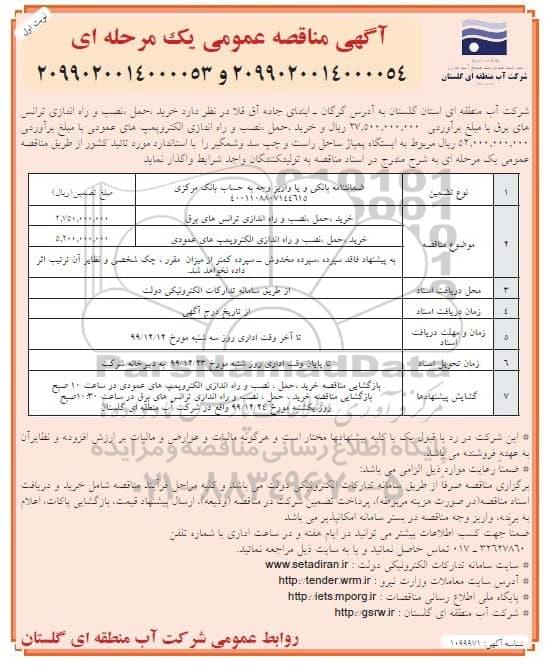 نوبت اول
شرکت آب منطقه ای گلستان
آگهی مناقصه عمومی یک مرحله ای
۲۰۹۹۰۲۰۰۱۴۰۰۰۰۵۴ و ۲۰۹۹۰۲۰۰۱۴۰۰۰۰۵۳
شرکت آب منطقه ای استان گلستان به آدرس گرگان ـ ابتدای جاده آق قلا در نظر دارد خرید ،حمل ،نصب و راه اندازی ترانس
های برق با مبلغ برآوردی ۲۷,۵۰۰,۰۰۰,۰۰۰ ریال و خرید ،حمل ،نصب و راه اندازی الکتروپمپ های عمودی با مبلغ برآوردی
۵۲,۰۰۰,۰۰۰,۰۰۰ ریال مربوط به ایستگاه پمپاژ ساحل راست و چپ سد وشمگیر را با استاندارد مورد تائید کشور از طریق مناقصه
عمومی یک مرحله ای به شرح مندرج در اسناد مناقصه به تولیدکنندگان واجد شرایط واگذار نماید
۱ نوع تضمین ضمانتنامه بانکی و یا واریز وجه به حساب بانک مرکزی مبلغ تضمین(ریال)
۴۰۰۱۱۰۸۸۰۷۱۴۴۶۱۵
۲ موضوع مناقصه خرید ،حمل ،نصب و راه اندازی ترانس های برق ۲,۷۵۰,۰۰۰,۰۰۰
خرید ،حمل ،نصب و راه اندازی الکتروپمپ های عمودی ۵,۲۰۰,۰۰۰,۰۰۰
به پیشنهاد فاقد سپرده ،سپرده مخدوش ـ سپرده کمتر از میزان مقرر ، چک شخصی و نظایر آن ترتیب اثر
داده نخواهد شد.
۳ محل دریافت اسناد از طریق سامانه تدارکات الکترونیکی دولت
۴ زمان دریافت اسناد از تاریخ درج آگهی
۵ زمان و مهلت دریافت اسناد تا آخر وقت اداری روز سه شنبه مورخ ۹۹/۱۲/۱۲
۶ زمان تحویل اسناد تا پایان وقت اداری روز شنبه مورخ ۹۹/۱۲/۲۳ به دبیرخانه شرکت
۷ گشایش پیشنهادها بازگشایی مناقصه خرید ،حمل ، نصب و راه اندازی الکتروپمپ های عمودی در ساعت ۱۰ صبح
بازگشایی مناقصه خرید ، حمل ، نصب و راه اندازی ترانس های برق در ساعت ۱۰:۳۰صبح
روز یکشنبه مورخ ۹۹/۱۲/۲۴ واقع در شرکت آب منطقه ای گلستان
* این شرکت در رد یا قبول یک یا کلیه پیشنهادها مختار است و هرگونه مالیات و عوارض و مالیات بر ارزش افزوده و نظایرآن
به عهده فروشنده می باشد.
* ضمناً رعایت موارد ذیل الزامی می باشد:
برگزاری مناقصه صرفا از طریق سامانه تدارکات الکترونیکی دولت می باشد و کلیه مراحل فرآیند مناقصه شامل خرید و دریافت
اسناد مناقصه(در صورت هزینه مربوطه)، پرداخت تضمین شرکت در مناقصه (ودیعه)، ارسال پیشنهاد قیمت، بازگشایی پاکات، اعلام
به برنده، واریز وجه مناقصه در بستر سامانه امکانپذیر می باشد
ضمنا جهت کسب اطلاعات بیشتر می توانید در ایام هفته و در ساعت اداری با شماره تلفن
۳۲۶۲۷۸۶۰ ـ ۰۱۷ تماس حاصل نمائید و یا به سایت ذیل مراجعه نمائید.
* سایت سامانه تدارکات الکترونیکی دولت : www.setadiran.ir
* آدرس سایت معاملات وزارت نیرو : http://tender.wrm.ir
* پایگاه ملی اطلاع رسانی مناقصات : http://iets.mporg.ir
* شرکت آب منطقه ای گلستان : http://gsrw.ir
روابط عمومی شرکت آب منطقه ای گلستان
شناسه آگهی: ۱۰۹۹۹۷۱
ParsNamadData
پایگاه اطلاع رسانی مناقصه و مزایده
۰۲۱-۸۸۳۴۹۶۷۰-۵